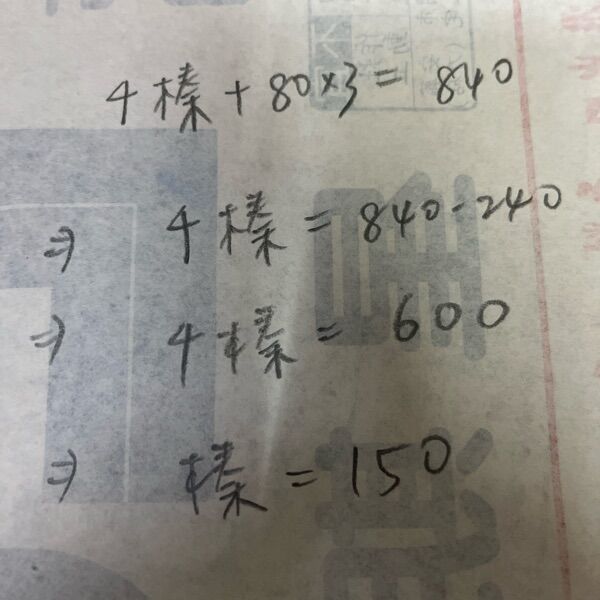 4榛+80×3=840
⇒ 4榛=840-240
⇒ 4榛=600
⇒ 榛=150